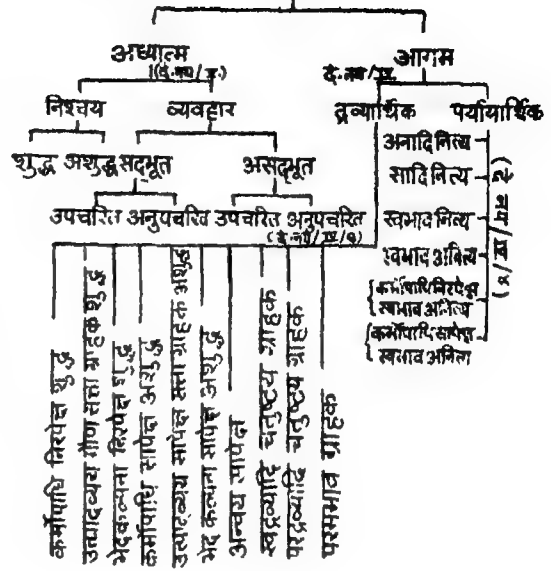 अध्यात्म आगम
(दे. नय/
निश्चय व्यवहार द्रव्यार्थिक पर्यायार्थिक
शुद्ध अशुद्ध सद्भूत असद्भूत
उपचरित अनुपचरित उपचरित अनुपचरित
(दे. नय/
अनादि नित्य
सादि नित्य
स्वभाव नित्य
स्वभाव अनित्य
कर्मोपाधि निरपेक्ष
स्वभाव अनित्य
कर्मोपाधि सापेक्ष
स्वभाव अनित्य
(दे नय/IV/४)
कर्मोपाधि निरपेक्ष शुद्ध
उत्पादव्यय गौण सत्ता ग्राहक शुद्ध
भेदकल्पना निरपेक्ष शुद्ध
कर्मोपाधि सापेक्ष अशुद्ध
उत्पादव्यय सापेक्ष सत्ता ग्राहक अशुद्ध
भेद कल्पना सापेक्ष अशुद्ध
अन्वय सापेक्ष
स्वद्रव्यादि चतुष्टय ग्राहक
परद्रव्यादि चतुष्टय ग्राहक
परमभाव ग्राहक